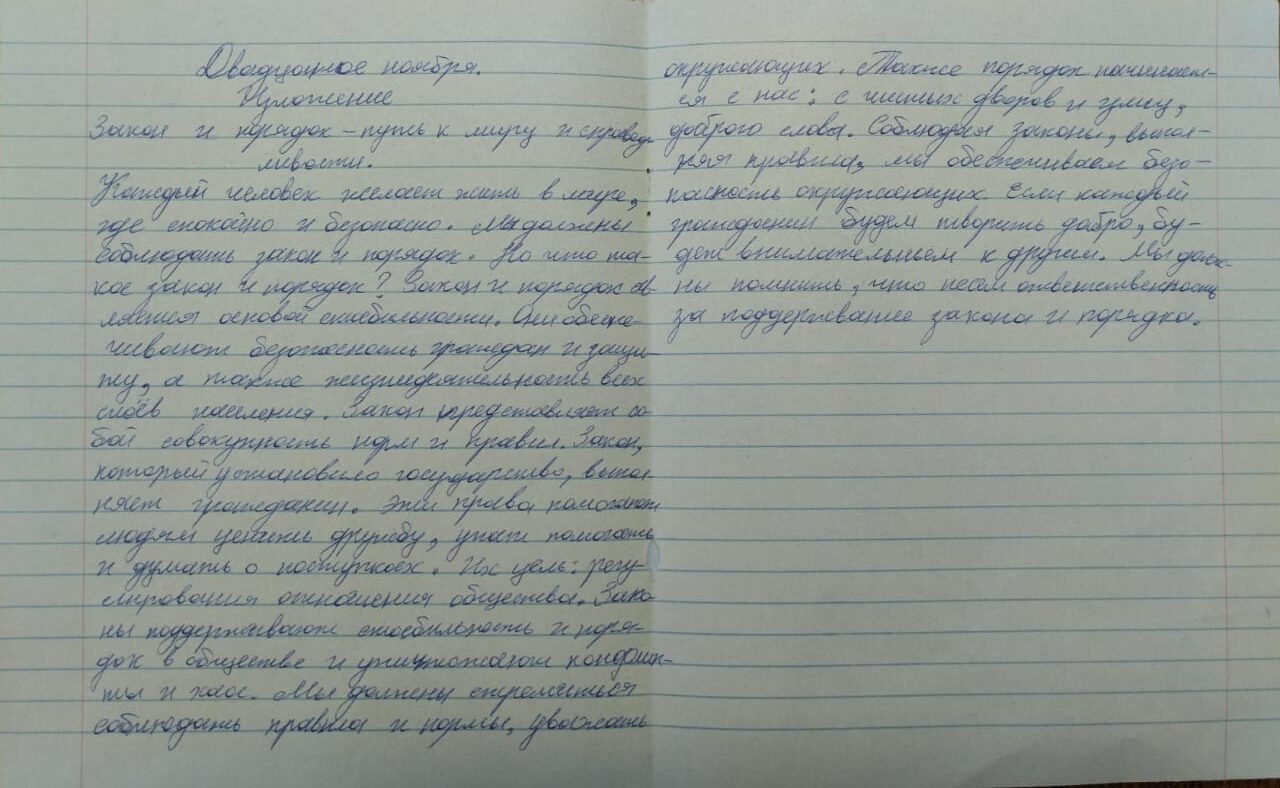 Двадцатое ноября.
Изложение
Закон и порядок – путь к миру и справед
ливости.
Каждый человек желает жить в мире,
где спокойно и безопасно. Мы должны
соблюдать закон и порядок. Но что та-
кое закон и порядок? Закон и порядок яв
ляется основой стабильности. Они обеспе-
чивают безопасность граждан и защи-
ту, а также жизнидеятельность всех
слоёв населения. Закон представляет со
бой совокупность норм и правил. Закон,
который установило государство, выпол-
няет гражданин. Эти права помогают
людям ценить дружбу, учат помогать
и думать о поступках. Их цель: регу-
лирования отношения общества. Зако-
ны поддерживают стабильность и поря-
док в обществе и уничтожают конфлик-
ты и хаос. Мы должны стремиться
соблюдать правила и нормы, уважать
окружающих. Также порядок начинает-
ся с нас: с чистых дворов и улиц,
доброго слова. Соблюдая законы, выпол-
няя правила, мы обеспечиваем безо-
пасность окружающих. Если каждый
гражданин будет творить добро, бу-
дет внимательным к другим. Мы долж-
ны помнить, что несем ответственность
за поддержвание закона и порядка.